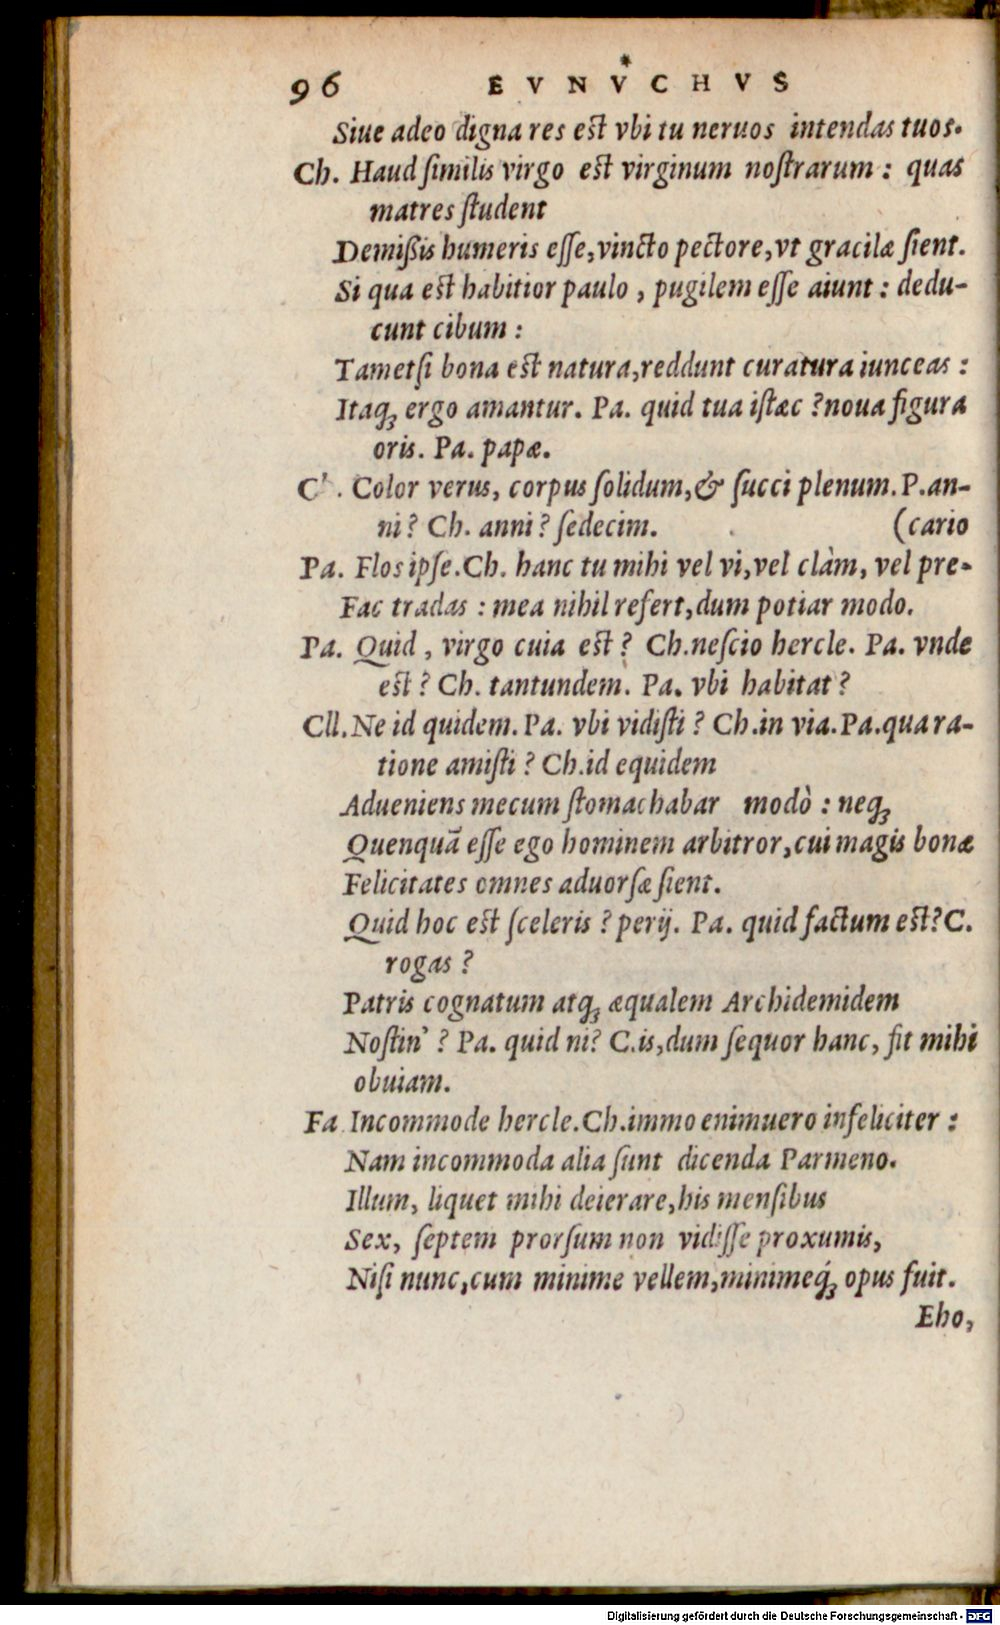 96 EVNVCHVS
Siue adeo digna res est vbi tu neruos intendas tuos.
Ch. Haud ſimilis virgo est virginum noſtrarum : quas
matres ſtudent
Demißis humeris eſſe, vincto pectore, vt gracilæ ſient.
Si qua est habitior paulo , pugilem eſſe aiunt : dedu-
cunt cibum :
Tametſi bona est natura, reddunt curatura iunceas :
Itaq; ergo amantur. Pa. quid tua iſtæc ? noua figura
oris. Pa. papæ.
Ch. Color verus, corpus ſolidum, & ſucci plenum. P. an-
ni? Ch. anni? ſedecim. (cario
Pa. Flos ipſe. Ch. hanc tu mihi vel vi, vel clàm, vel pre-
Fac tradas : mea nihil refert, dum potiar modo.
Pa. Quid , virgo cuia est ? Ch. neſcio hercle. Pa. vnde
est ? Ch. tantundem. Pa. vbi habitat ?
Cll. Ne id quidem. Pa. vbi vidiſti ? Ch. in via. Pa. qua ra-
tione amiſti ? Ch. id equidem
Adueniens mecum ſtomachabar modò : neq;
Quenquã eſſe ego hominem arbitror, cui magis bonæ
Felicitates omnes aduorſæ ſient.
Quid hoc est ſceleris ? perij. Pa. quid factum est? C.
rogas ?
Patris cognatum atq; æqualem Archidemidem
Noſtin' ? Pa. quid ni? C. is, dum ſequor hanc, fit mihi
obuiam.
Fa Incommode hercle. Ch. immo enimuero infeliciter :
Nam incommoda alia ſunt dicenda Parmeno.
Illum, liquet mihi deierare, his menſibus
Sex, ſeptem prorſum non vidiſſe proxumis,
Niſi nunc, cum minime vellem, minimeq́; opus fuit.
Eho,
Digitalisierung gefördert durch die Deutsche Forschungsgemeinschaft - DFG